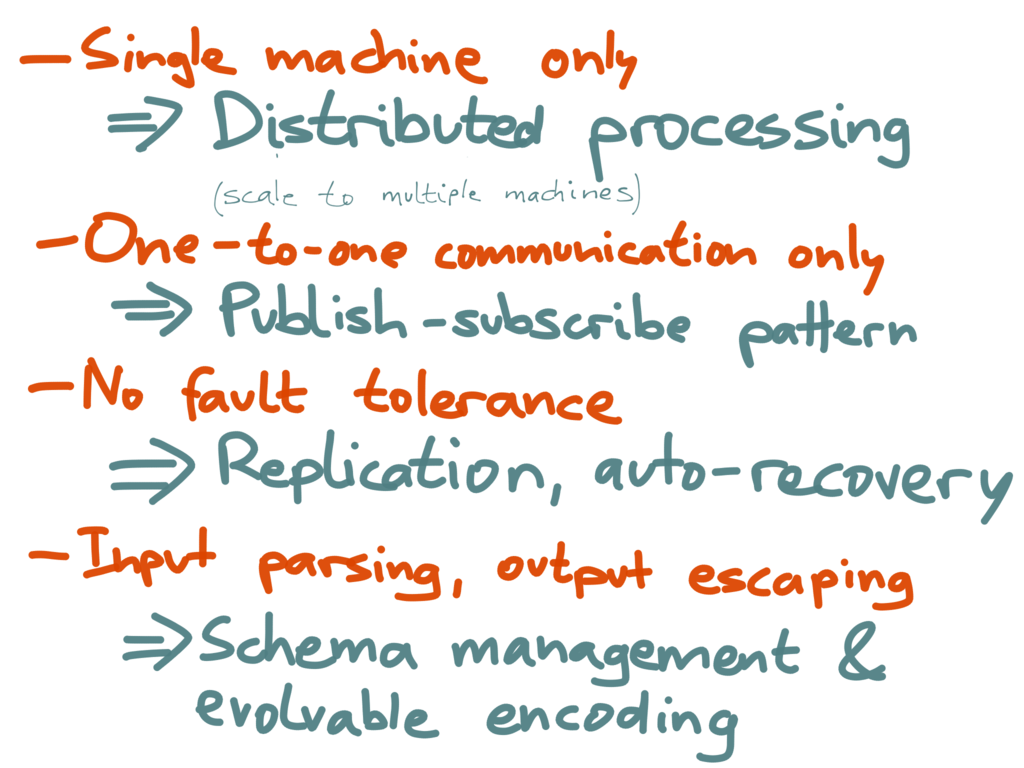 – Single machine only
⇒ Distributed processing
(scale to multiple machines)
– One-to-one communication only
⇒ Publish-subscribe pattern
– No fault tolerance
⇒ Replication, auto-recovery
– Input parsing, output escaping
⇒ Schema management &
evolvable encoding